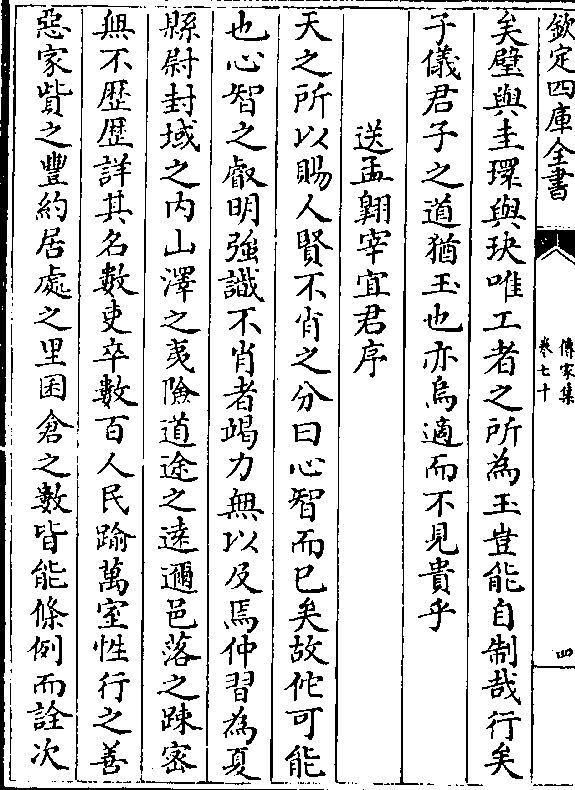 欽定四庫全書
傳家集
卷七十
四
矣璧與圭環與玦唯工者之所為玉豈能自制哉行矣
子儀君子之道猶玉也亦烏適而不見貴乎
送孟翺宰宜君序
天之所以賜人賢不肖之分曰心智而已矣故佗可能
也心智之叡明強識不肖者竭力無以及焉仲習為夏
縣尉封域之内山澤之夷險道途之逺邇邑落之踈宻
無不歴歴詳其名數吏卒數百人民踰萬室性行之善
惡家貲之豐約居處之里囷倉之數皆能條例而詮次